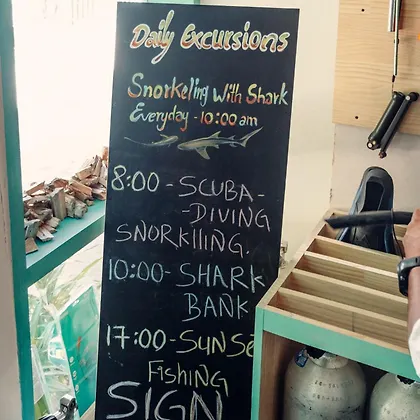 Daily Excursions
Snorkeling with Shark
Everyday - 10:00 am
8:00 - SCUBA -
- DIVING
SNORKIIING.
10:00 - SHARK
BANK
17:00 - SUNSE
FISHING
SIGN